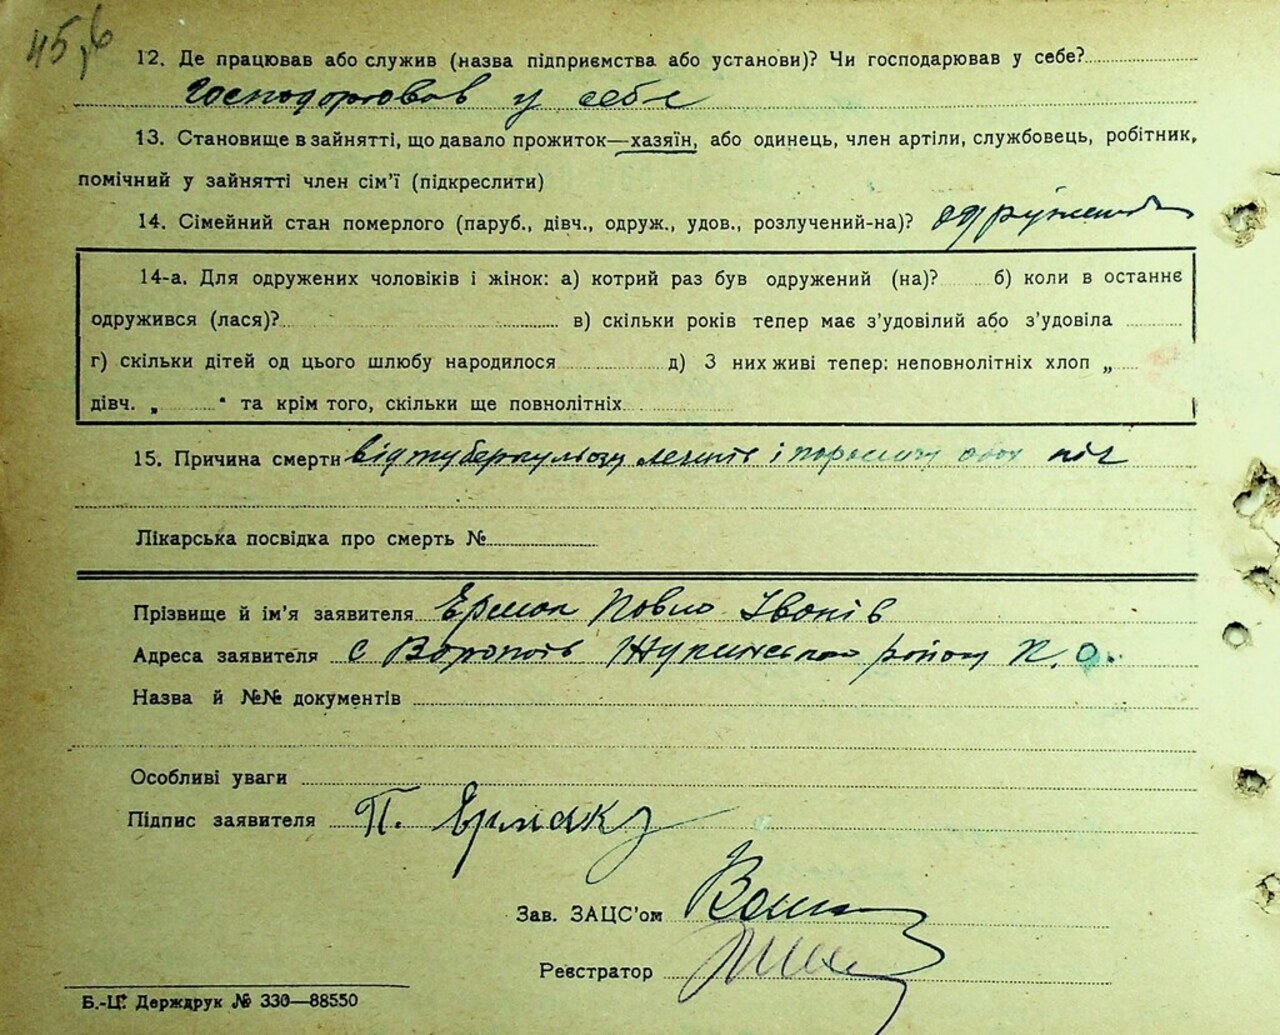 45,6
12. Де працював або служив (назва підприємства або установи)? Чи господарював у себе?
Господорював у себе
13. Становище в зайнятті, що давало прожиток—хазяїн, або одинець, член артіли, службовець, робітник,
помічний у зайнятті член сім'ї (підкреслити)
14. Сімейний стан померлого (паруб., дівч., одруж., удов., розлучений-на)?
14-а. Для одружених чоловіків і жінок: а) котрий раз був одружений (на)? б) коли в останнє
одружився (лася)? в) скільки років тепер має з'удовілий або з'удовіла
г) скільки дітей од цього шлюбу народилося д) З них живі тепер: неповнолітніх хлоп „
дівч. „ “ та крім того, скільки ще повнолітніх
15. Причина смерти від туберкульозу легенів і паралічу обох ніг
Лікарська посвідка про смерть №
Прізвище й ім'я заявителя Ермак Повло Іванів
Адреса заявителя с Воропаїв Жукинського району К. О.
Назва й №№ документів
Особливі уваги
Підпис заявителя П. Ярмак
Зав. ЗАЦС'ом
Реєстратор
Б.-Ц. Держдрук № 330—88550